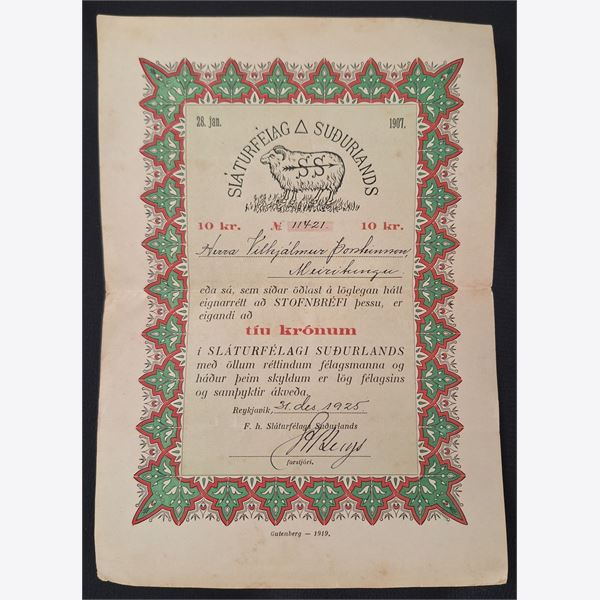 28. jan. 1907.
SLÁTURFÉLAG △ SUÐURLANDS
SS
10 kr. № 11421 10 kr.
Herra Vilhjálmur Þorsteinsson,
Meiritungu
eða sá, sem síðar öðlast á löglegan hátt
eignarrétt að STOFNBRÉFI þessu, er
eigandi að
tíu krónum
í SLÁTURFÉLAGI SUÐURLANDS
með öllum réttindum félagsmanna og
háður þeim skyldum er lög félagsins
og samþyktir ákveða.
Reykjavík, 31. des. 1925
F. h. Sláturfélags Suðurlands
forstjóri.
Gutenberg — 1919.